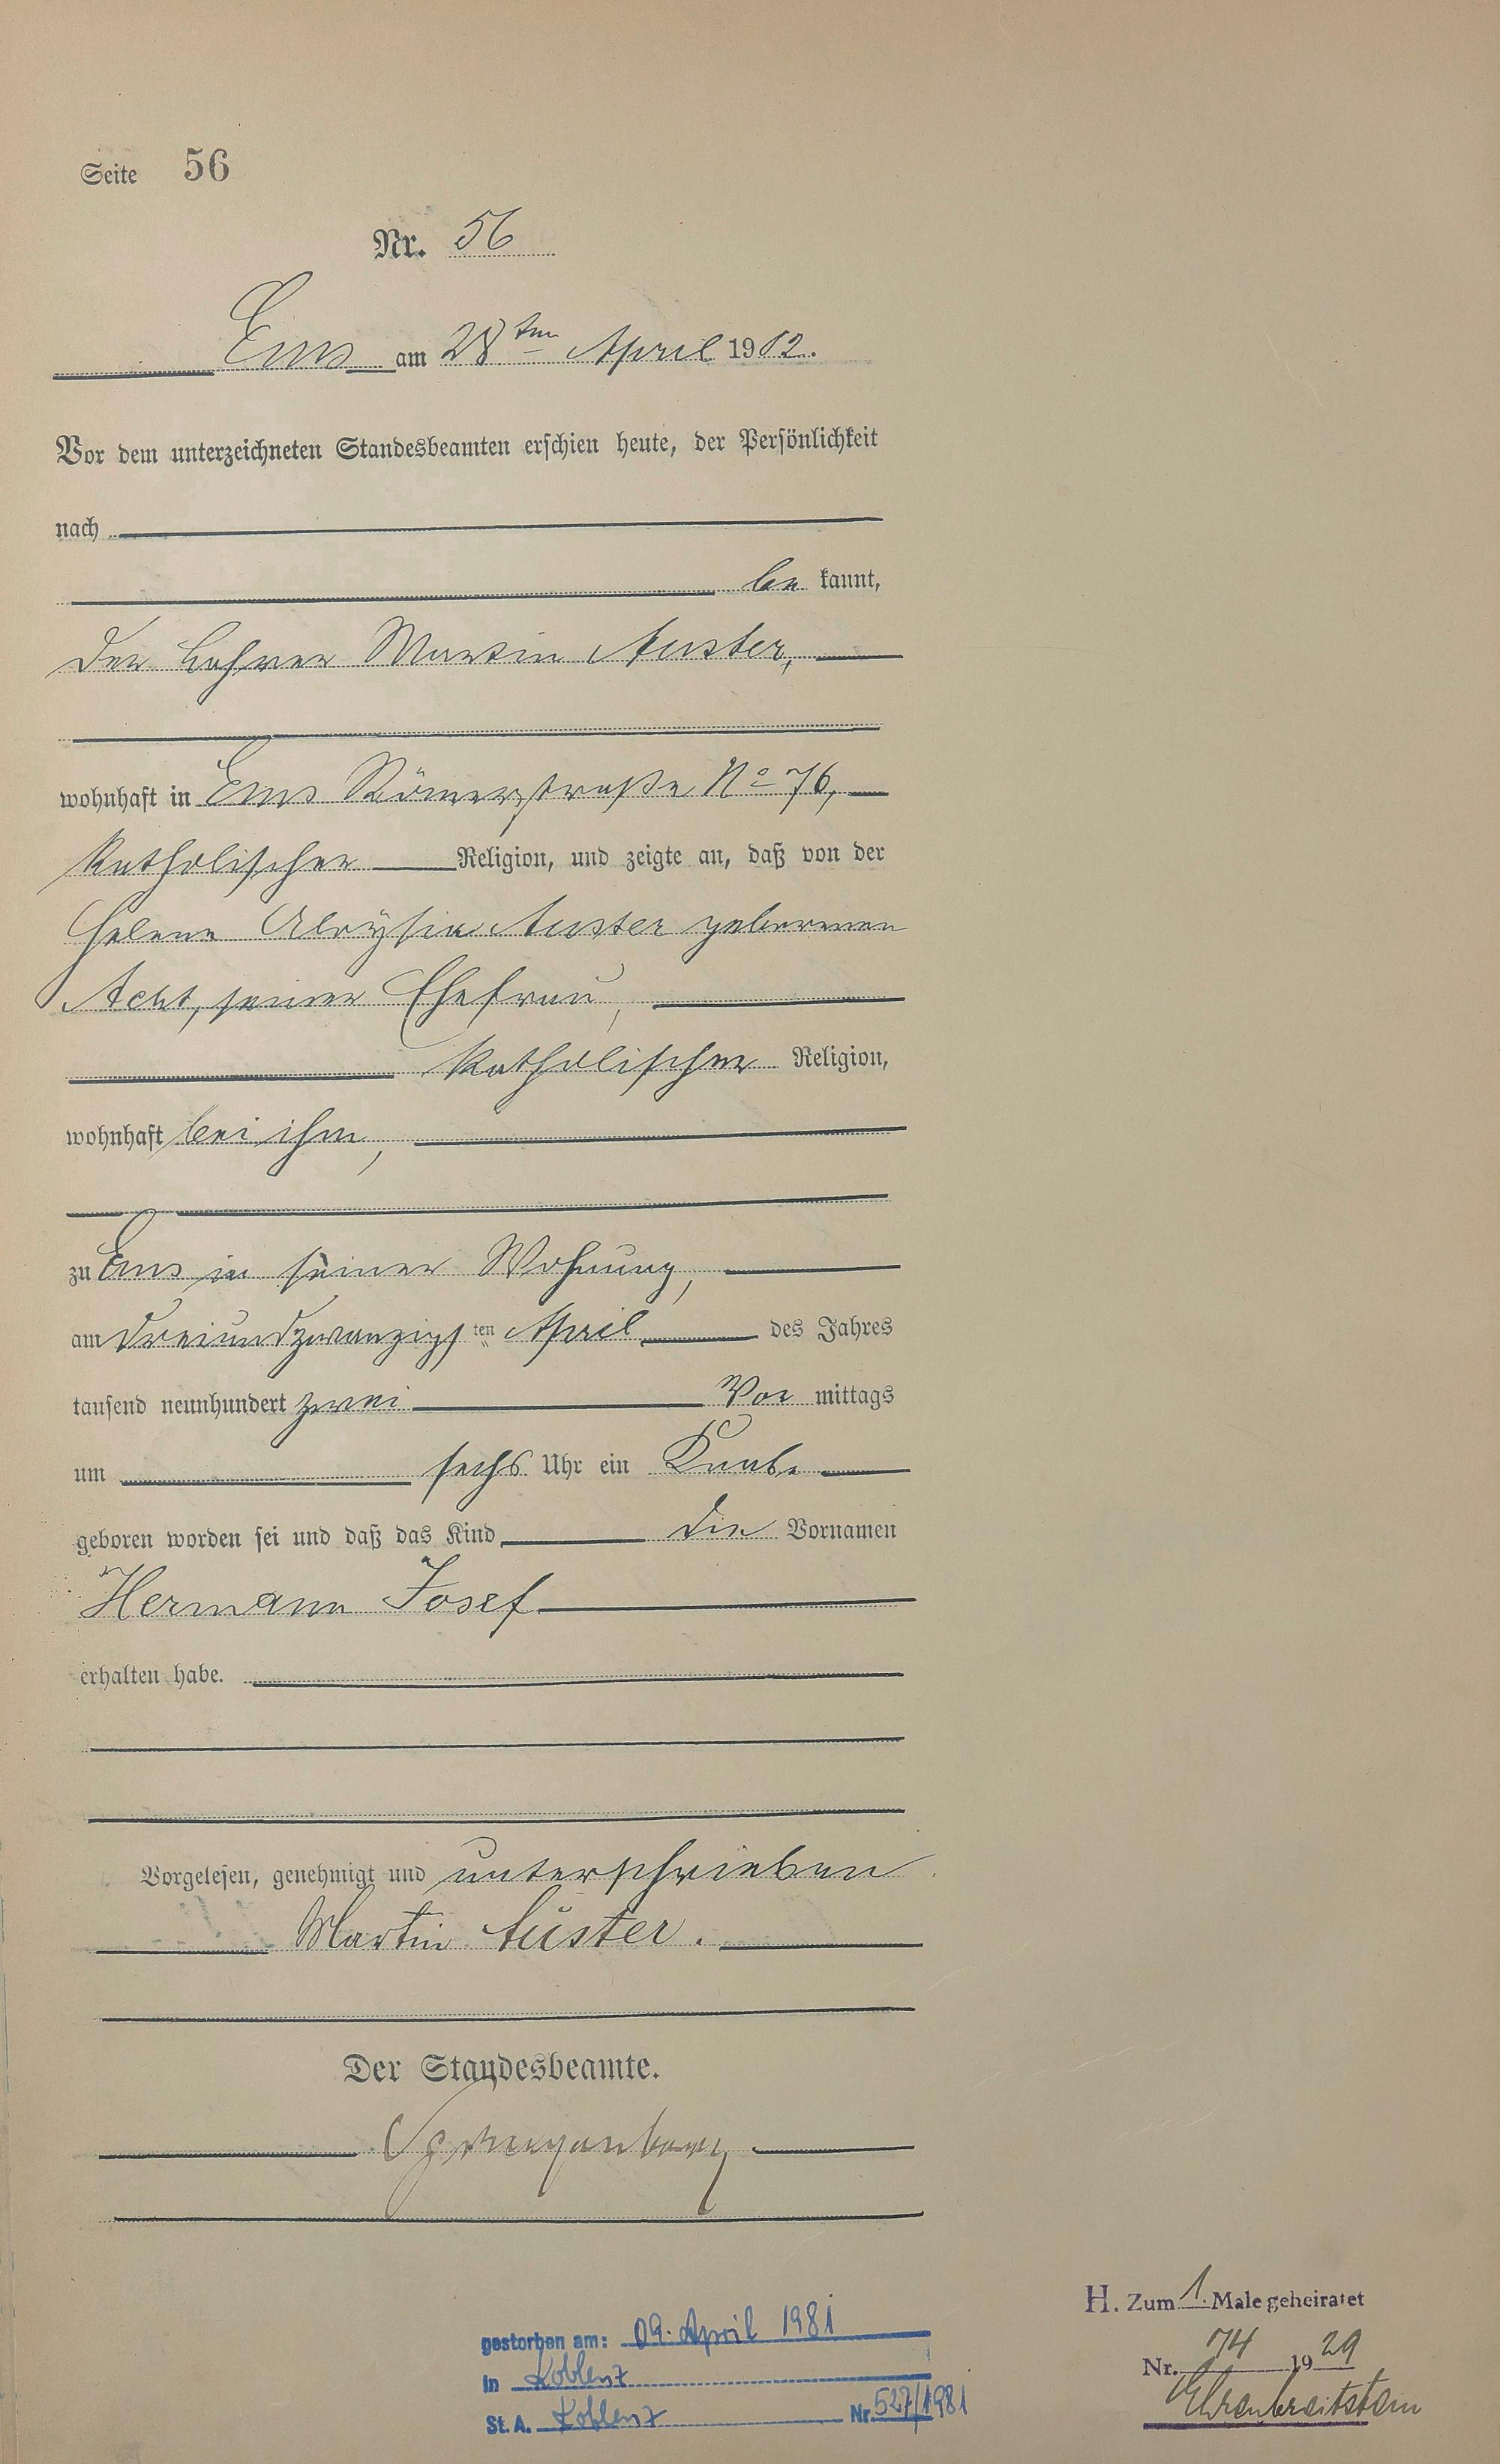 Seite 56
Nr. 56
Ems am 28ten April 1902.
Vor dem unterzeichneten Standesbeamten erschien heute, der Persönlichkeit
nach
be kannt,
der Lehrer Martin Auster,
wohnhaft in Ems Römerstraße No 76,
katholischer Religion, und zeigte an, daß von der
Helene Aloysia Auster geborenen
Acht, seiner Ehefrau,
katholischer Religion,
wohnhaft bei ihm,
zu Ems in seiner Wohnung,
am dreiundzwanzigsten April des Jahres
tausend neunhundert zwei Vor mittags
um sechs Uhr ein Knabe
geboren worden sei und daß das Kind die Vornamen
Hermann Josef
erhalten habe.
Vorgelesen, genehmigt und unterschrieben
Martin Auster.
Der Standesbeamte.
H. Zum 1. Male geheiratet
Nr. 74 1929
Ehrenbreitstein
gestorben am: 09. April 1981
in Koblenz
St. A. Koblenz Nr. 527/1981